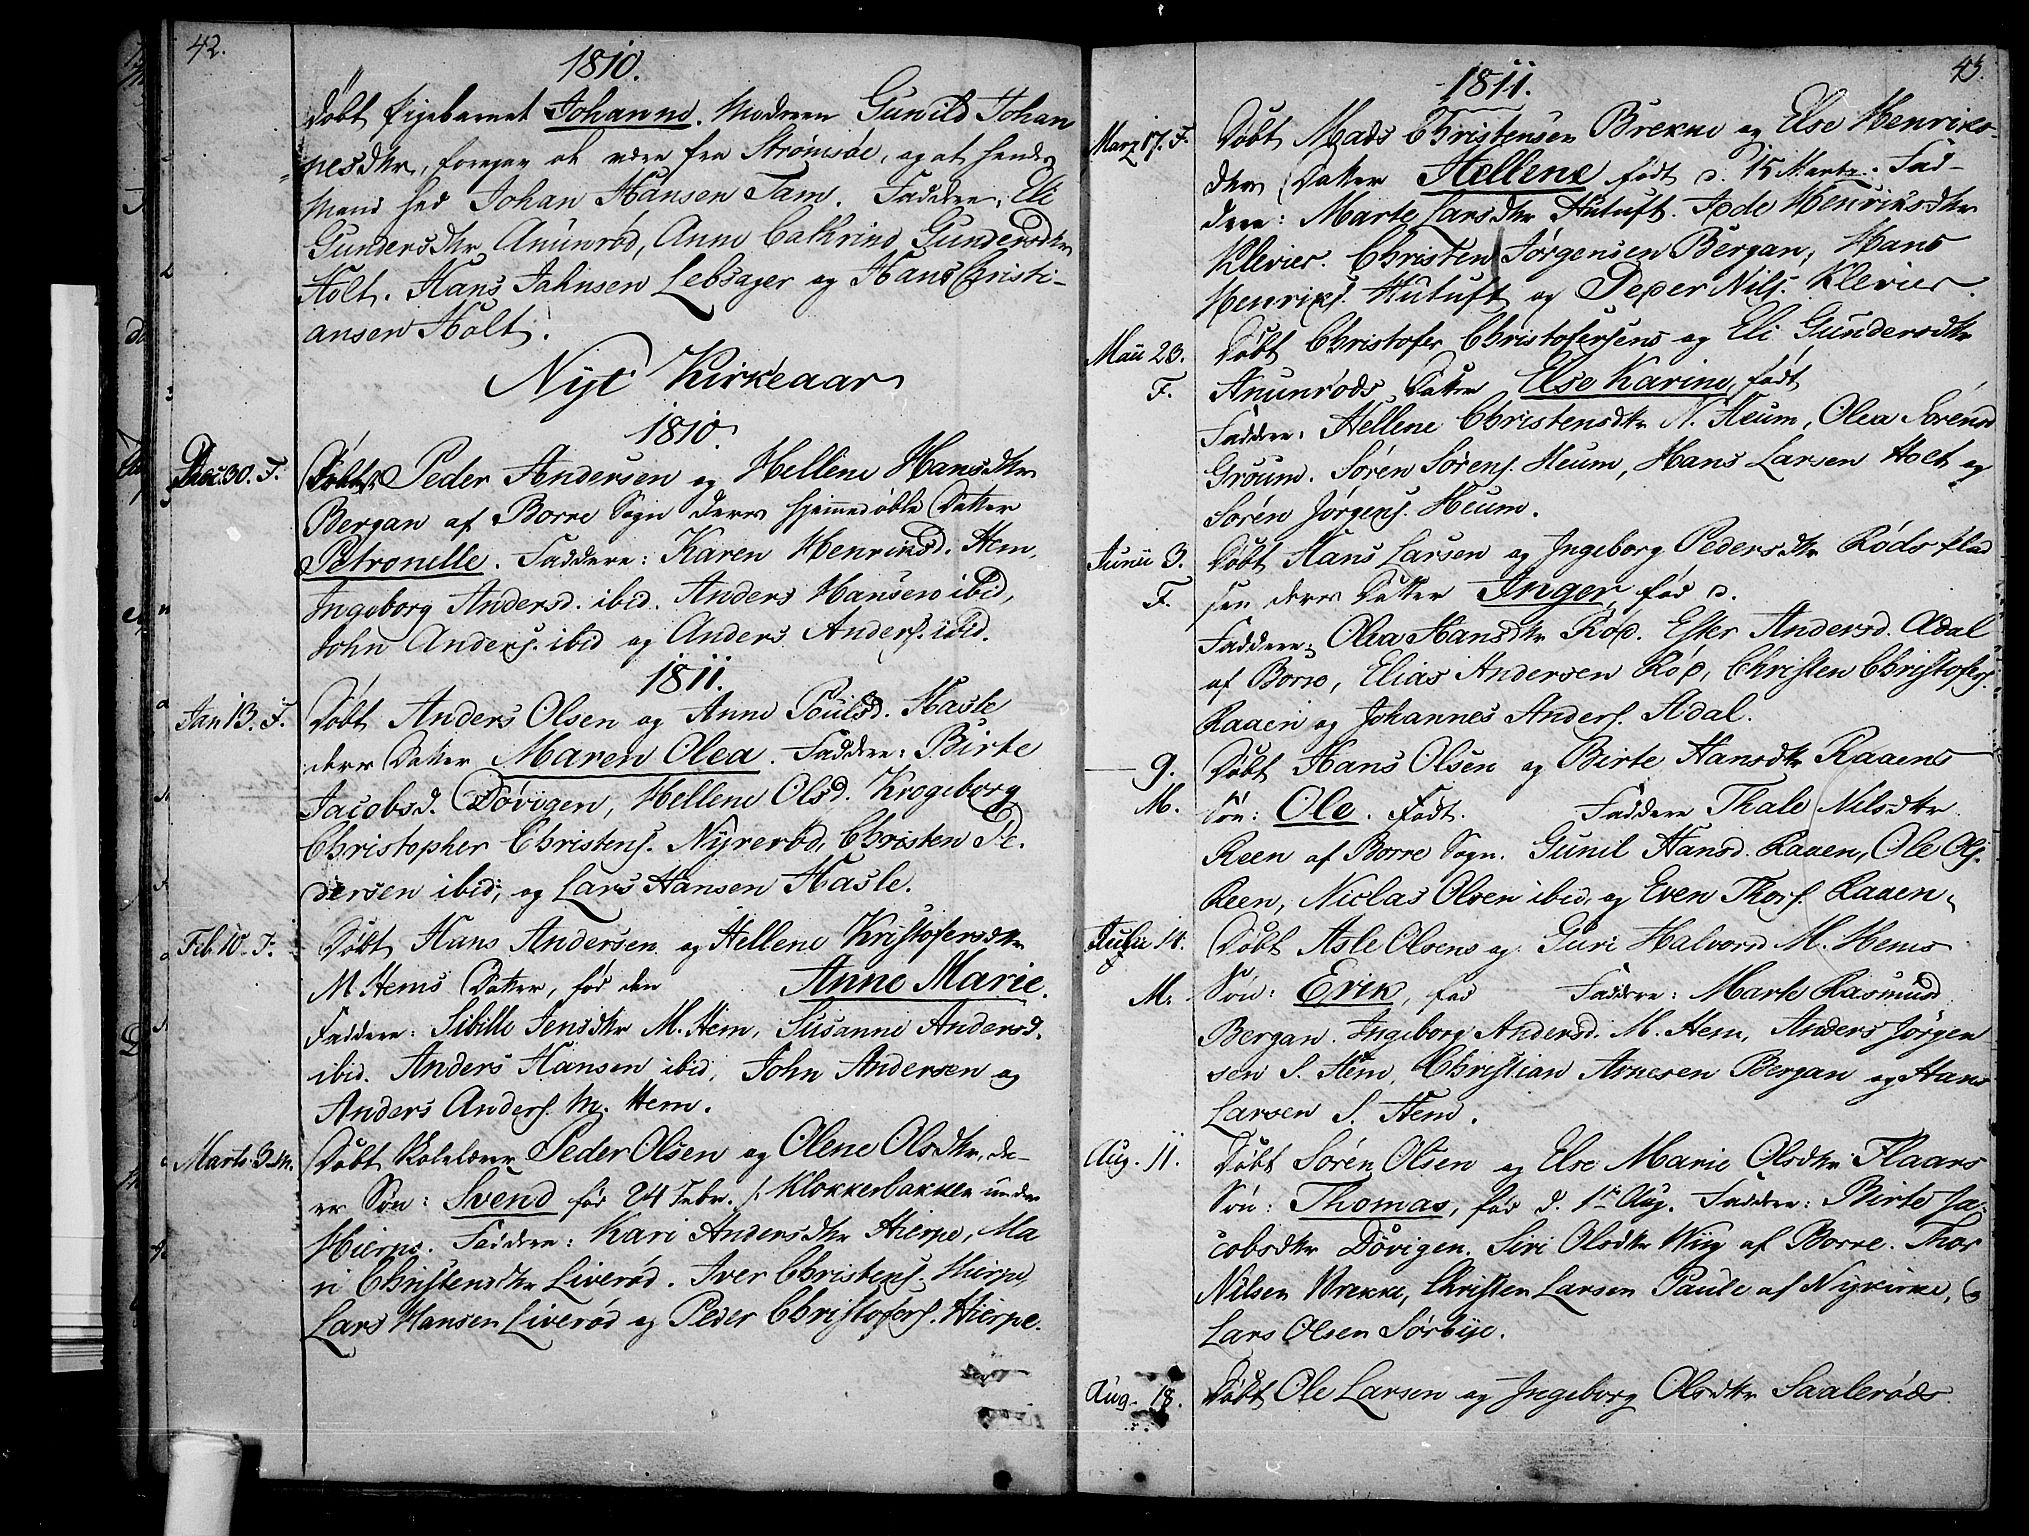 42.
1810.
Døbt Pigebarnet Johanne. Moderen Gunild Johan
nesdtr, foregav at være fra Strømsøe, og at hendes
Mand hed Johan Hansen Tam. Faddere: Eli
Gundersdtr Anunrød, Anne Cathrine Gundersdtr
Holt. Hans Jahnsen Lebsager og Hans Christi-
ansen Holt.
Nyt Kirkeaar
1810.
Dec. 30. F. Døbt Peder Andersen og Hellene Hansdtr
Bergan af Borre Sogn deres hjemmedøbte Datter
Petronelle. Faddere: Karen Henriksd. Hem,
Ingeborg Andersd. ibid. Anders Hansen ibid,
John Anders. ibid og Anders Anders. ibid.
1811.
Jan 13. F. Døbt Anders Olsen og Anne Poulsd. Hasle
deres Datter Maren Olea. Faddere: Birte
Jacobsd. Døvigen, Hellene Olsd. Krogeborg
Christopher Christens. Nyrerød, Christen Pe-
dersen ibid; og Lars Hansen Hasle.
Feb. 10. F. Døbt Hans Andersen og Hellene Kristofersdtr
M. Hems Datter, fød den Anne Marie.
Faddere: Sibille Jensdtr M. Hem, Susanne Andersd.
ibid. Anders Hansen ibid, John Andersen og
Anders Anders. M. Hem.
Marts 3. M. Døbt Skolelærer Peder Olsen og Olene Olsdtr, de-
res Søn: Svend fød 24 Febr. Klokkerbakken under
Hierpe. Faddere: Kari Andersdtr Hierpe, Ma
ri Christensdtr Liverød. Iver Christens. Hierpe,
Lars Hansen Liverød og Peder Christofers. Hierpe.
43.
1811.
Marz 17. F. Døbt Mads Christensen Brekke og Else Henriks-
dtrs Datter Hellene født d. 15 Marts. Fad-
dere: Marte Larsdtr Hutuft. Inde Henriksdtr
Klevier. Christen Jørgensen Bergan, Hans
Henriks. Hutuft og Peder Nils. Klevier.
Maii 23. Døbt Christofer Christofersens og Eli Gundersdtr
F. Anunrøds Datter Else Karine, født
Faddere: Hellene Christensdtr N. Heum, Olea Sørensd
Grøum. Søren Sørens. Heum, Hans Larsen Holt og
Søren Jørgens. Heum.
Junii 3. Døbt Hans Larsen og Ingeborg Pedersdtr Røds
F. deres Datter Inger, fød d.
Faddere: Olea Hansdtr Røp. Ester Andersd. Adal
af Borre, Elias Andersen Røp, Christen Christofers.
Raaen og Johannes Anders. Adal.
— 9. Døbt Hans Olsen og Birte Hansdtr Raaens
M. Søn: Ole. Født. Faddere Thale Nilsdtr
Reen af Borre Sogn. Gunil Hansd. Raaen, Ole Ols.
Reen, Niclas Olsen ibid, og Even Thors. Raaen.
Julii 14. Døbt Asle Olsens og Guri Halvorsd M. Hems
M. Søn: Erik, fød Faddere: Marte Rasmusd
Bergan. Ingeborg Andersd. M. Hem, Anders Jørgen
sen S. Hem, Christian Arnesen Bergan og Hans
Larsen S. Hem.
Aug. 11. Døbt Søren Olsen og Else Marie Olsdtr Flaars
Søn: Thomas, fød d. 1te Aug. Faddere: Birte Ja-
cobsdtr Døvigen. Siri Olsdtr Wiig af Borre. Thor
Nilsen Brekke, Christen Larsen Paule af Nykirke, og
Lars Olsen Sørbye.
Aug. 18. Døbt Ole Larsen og Ingeborg Olsdtr Saalerøds